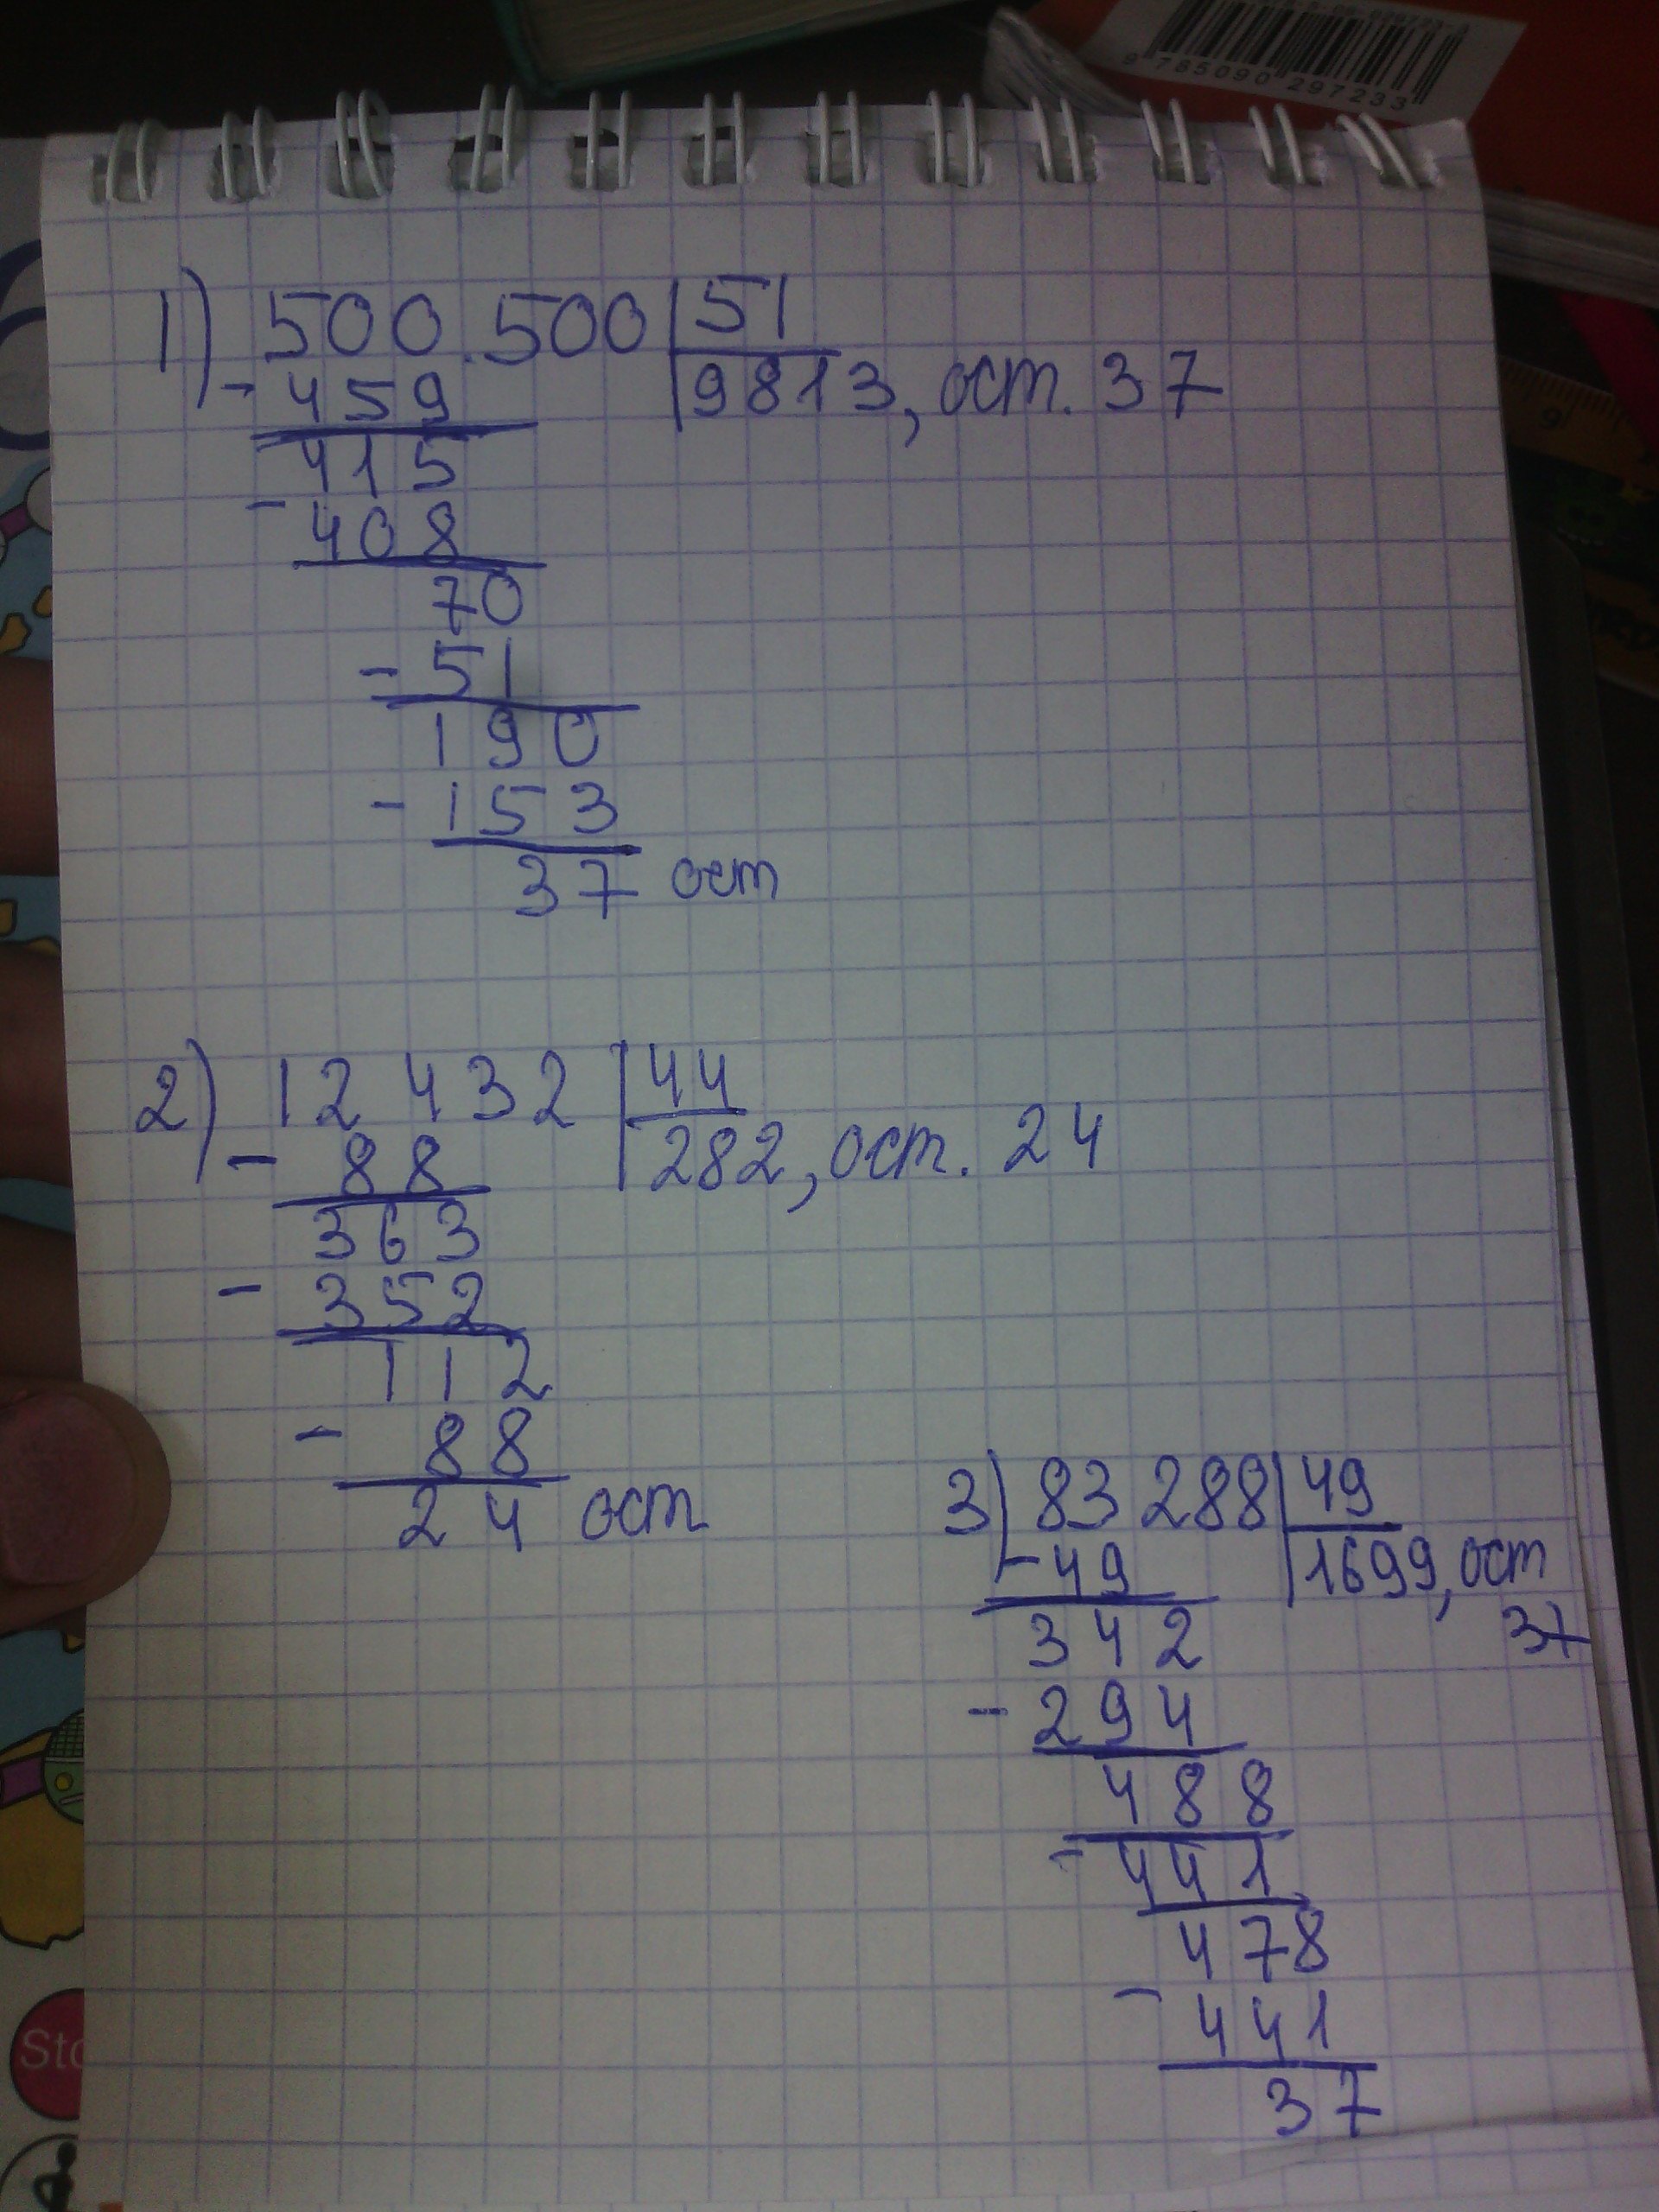 9 785090 297233
1) 500.500 51
- 459 9813, ост. 37
415
- 408
70
- 51
190
- 153
37 ост
2) 12 432 44
- 88 282, ост. 24
363
- 352
112
- 88
24 ост
3) 83 288 49
- 49 1699, ост
37
342
- 294
488
- 441
478
- 441
37
Sto